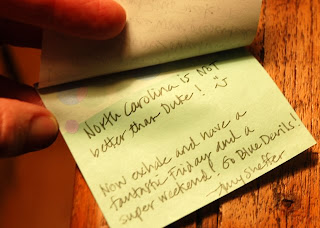 North Carolina is NOT
better than Duke! :)
Now exhale and have a
fantastic Friday and a
super weekend! Go Blue Devils!
Amy Sheffer